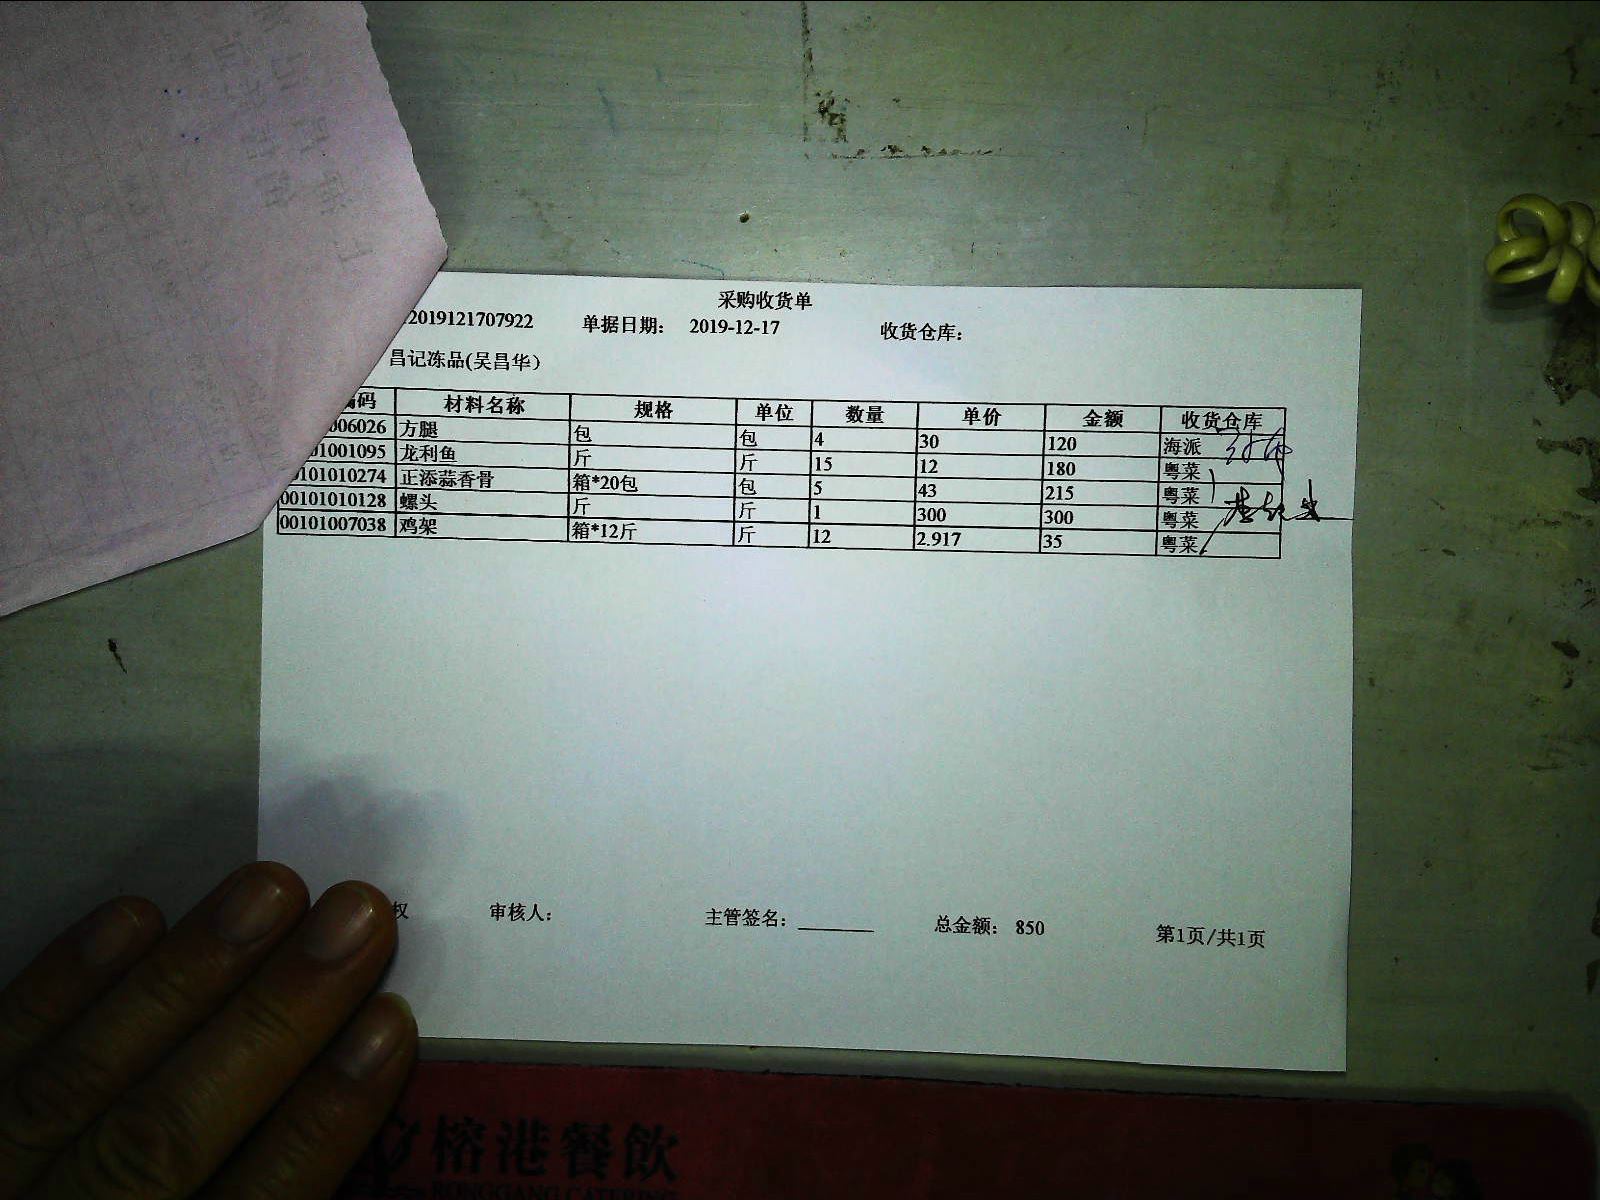 采购收货单
2019121707922 单据日期： 2019-12-17 收货仓库：
昌记冻品(吴昌华）
编码 材料名称 规格 单位 数量 单价 金额 收货仓库
006026 方腿 包 包 4 30 120 海派
01001095 龙利鱼 斤 斤 15 12 180 粤菜
0101010274 正添蒜香骨 箱*20包 包 5 43 215 粤菜
00101010128 螺头 斤 斤 1 300 300 粤菜
00101007038 鸡架 箱*12斤 斤 12 2.917 35 粤菜
权 审核人： 主管签名：_______ 总金额： 850 第1页/共1页
榕港餐飲
RONGGANG CATERING